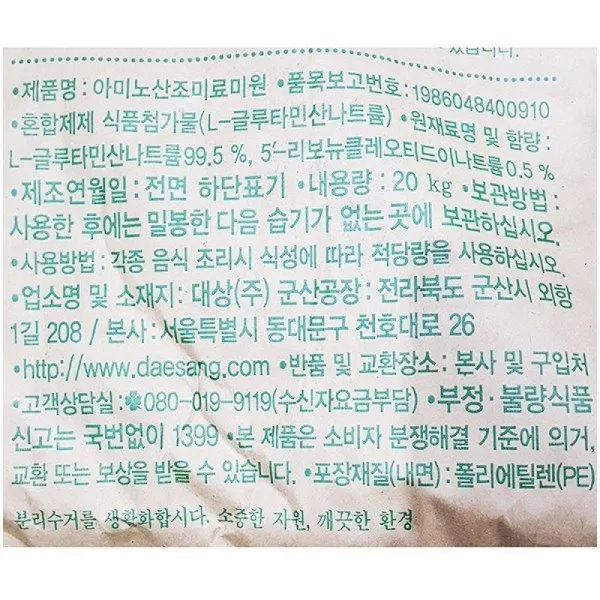 있습니다.
•제품명 : 아미노산조미료미원 •품목보고번호 : 1986048400910
•혼합제제 식품첨가물(L-글루타민산나트륨) •원재료명 및 함량 :
L-글루타민산나트륨99.5 %, 5'-리보뉴클레오티드이나트륨0.5 %
•제조연월일 : 전면 하단표기 •내용량 : 20 kg •보관방법 :
사용한 후에는 밀봉한 다음 습기가 없는 곳에 보관하십시오.
•사용방법 : 각종 음식 조리시 식성에 따라 적당량을 사용하십시오.
•업소명 및 소재지 : 대상(주) 군산공장 : 전라북도 군산시 외항
1길 208 / 본사 : 서울특별시 동대문구 천호대로 26
•http://www.daesang.com •반품 및 교환장소 : 본사 및 구입처
•고객상담실 : ☘080-019-9119(수신자요금부담) •부정·불량식품
신고는 국번없이 1399 •본 제품은 소비자 분쟁해결 기준에 의거,
교환 또는 보상을 받을 수 있습니다. •포장재질(내면) : 폴리에틸렌(PE)
분리수거를 생활화합시다. 소중한 자원, 깨끗한 환경